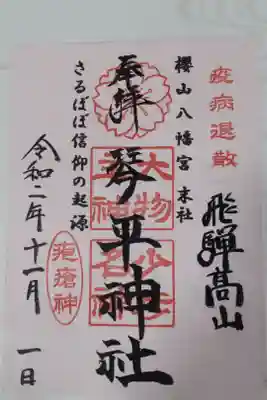 疫病退散
飛騨高山
櫻山八幡宮 末社
奉拝
琴平神社
大物主神
少彦名神
さるぼぼ信仰の起源
疱瘡神
令和二年十一月一日